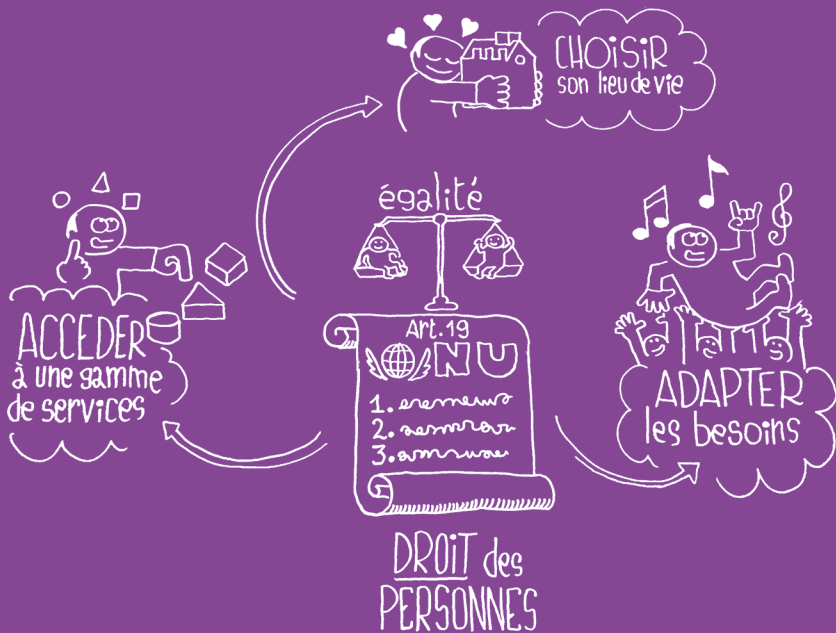 CHOiSiR
son lieu de vie
égalité
ACCEDER
à une gamme
de services
Art.19
ONU
1.
2.
3.
ADAPTER
les besoins
DROiT des
PERSONNES